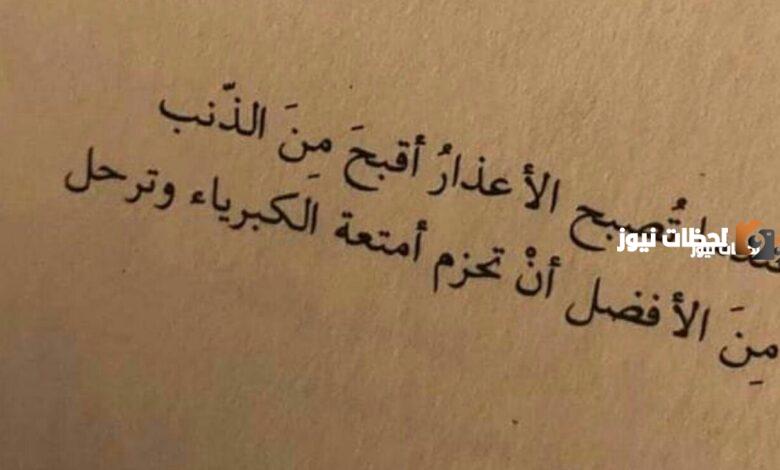 تُصبح الأعذارُ أقبحَ مِنَ الذّنب
مِنَ الأفضل أنْ تحزم أمتعة الكبرياء وترحل
لحظات نيوز
لحظات نيوز